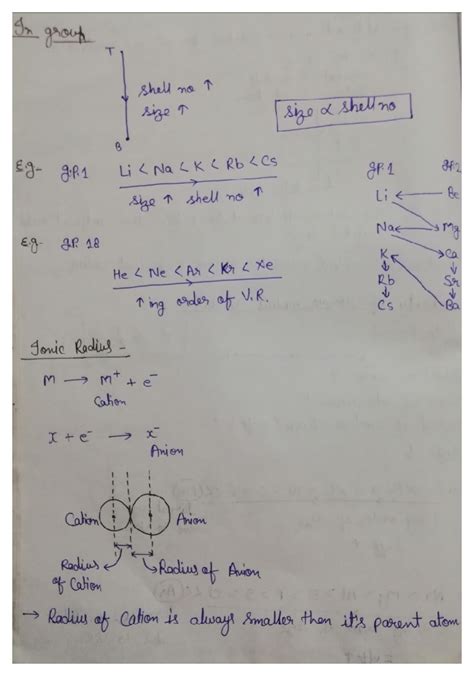 In group
T
shell no ↑
size ↑
B
size ∝ shell no
E.g- gp.1 Li < Na < K < Rb < Cs
size ↑ shell no ↑
gp.1 gp.2
Li Be
Na Mg
K Ca
Rb Sr
Cs Ba
E.g- gp. 18
He < Ne < Ar < Kr < Xe
↑ing order of V.R.
Ionic Radius -
M → M⁺ + e⁻
Cation
X + e⁻ → X⁻
Anion
Cation Anion
Radius of Cation
Radius of Anion
→ Radius of Cation is always smaller then it's parent atom